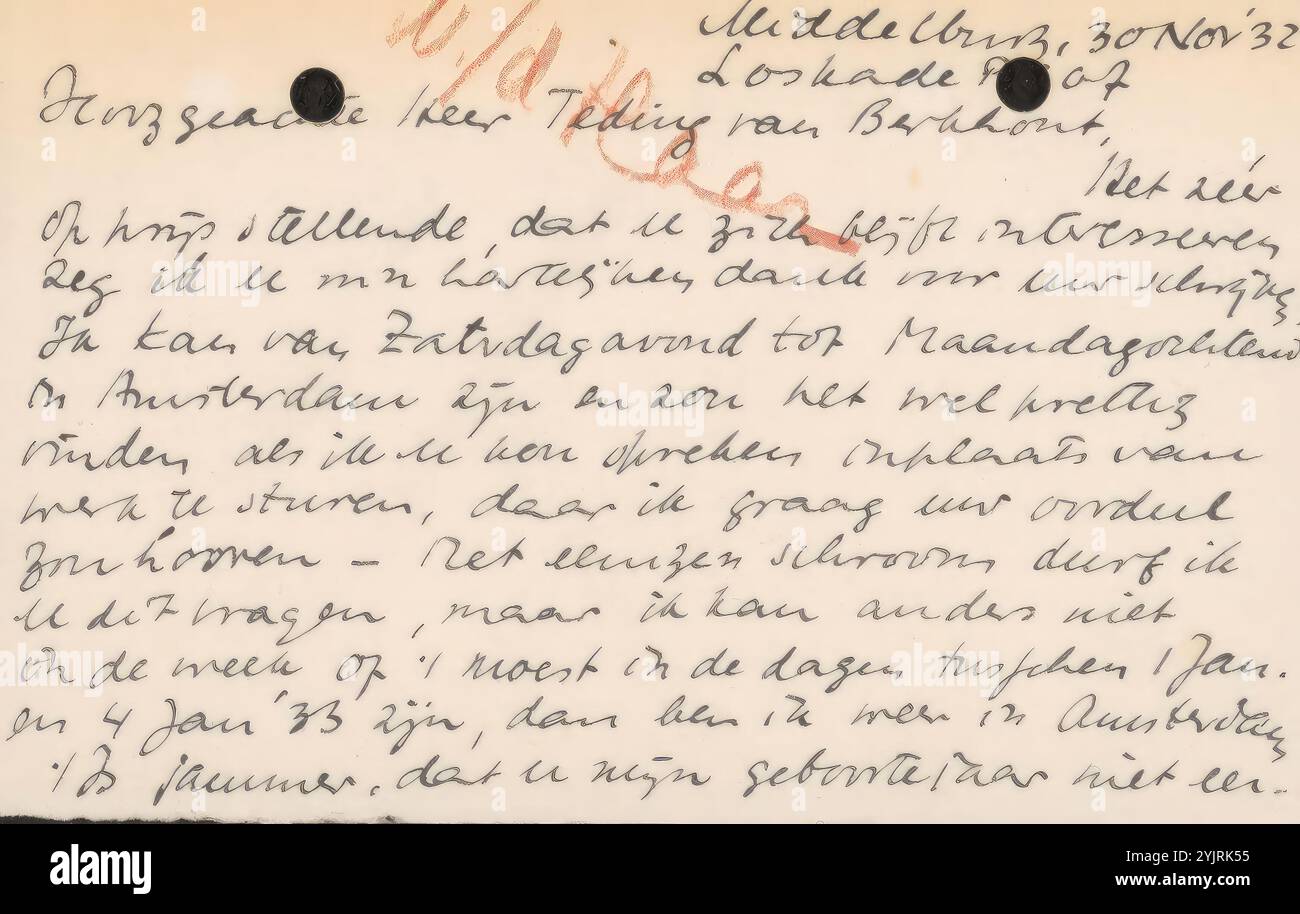 Middelburg, 30 Nov '32
Loskade
Hooggeachte Heer Teding van Berkhout,
Het zéér
op prijs stellende, dat u zich blijft interesseeren
zeg ik u m'n hartelijken dank voor uw schrijven.
Ik kan van Zaterdagavond tot Maandagochtend
in Amsterdam zijn en zou het wel prettig
vinden als ik u kon spreken inplaats van
werk te sturen, daar ik graag uw oordeel
zou hooren – Met eenigen schroom durf ik
u dit vragen, maar ik kan anders niet
in de week of 't moest in de dagen tusschen 1 Jan.
en 4 Jan '33 zijn, dan ben ik weer in Amsterdam
't Is jammer, dat u mijn geboortejaar niet eer-
alamy
Image ID: 2YJRK55
www.alamy.com